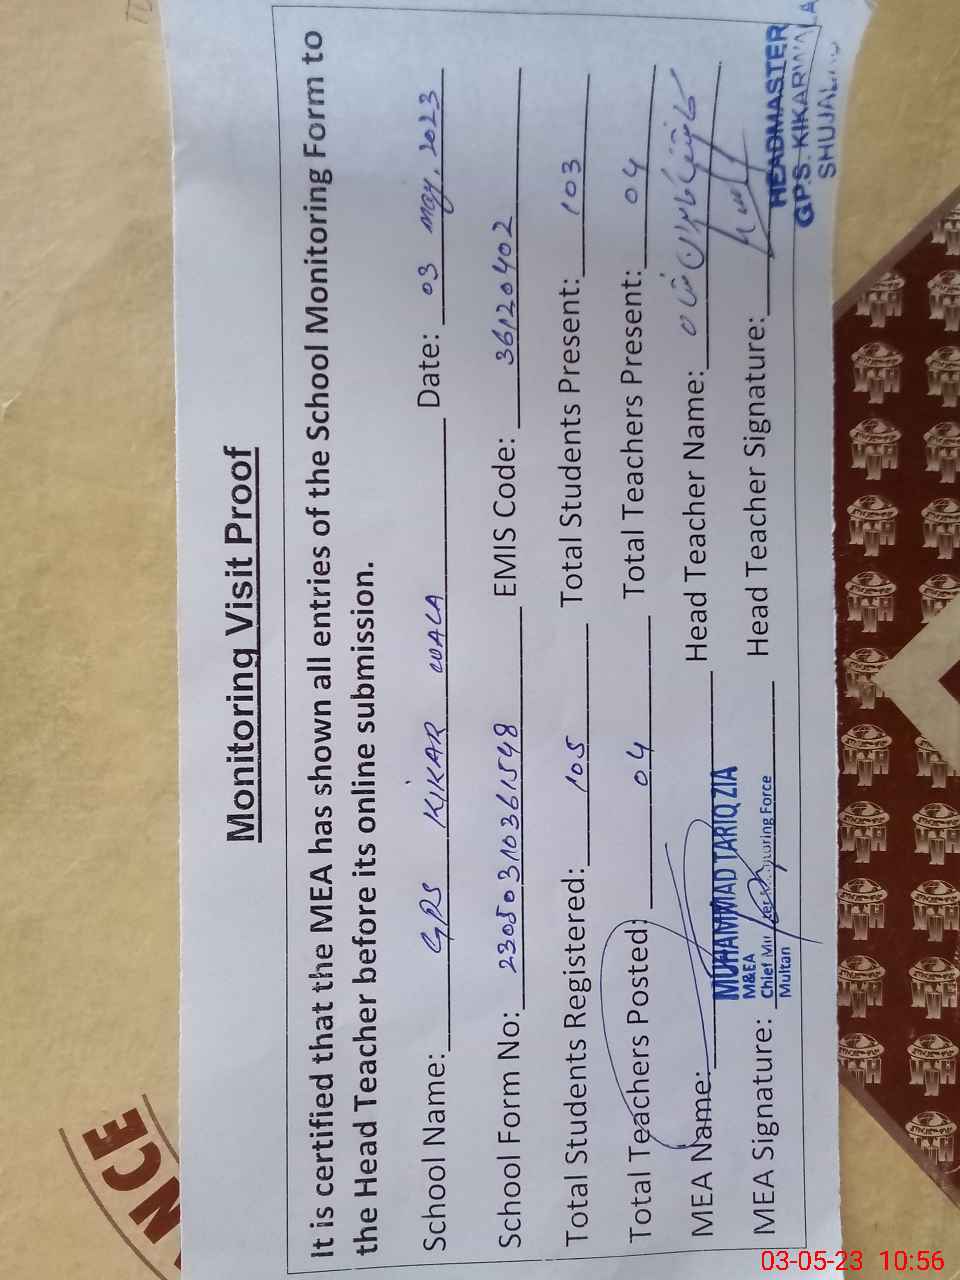 Monitoring Visit Proof
It is certified that the MEA has shown all entries of the School Monitoring Form to
the Head Teacher before its online submission.
School Name: GPS KIKAR WALA Date: 03 may, 2023
School Form No: 23050310361548 EMIS Code: 36120402
Total Students Registered: 105 Total Students Present: 103
Total Teachers Posted: 04 Total Teachers Present: 04
MEA Name: MUHAMMAD TARIQ ZIA Head Teacher Name:
M&EA
Chief Monitoring Force
Multan
MEA Signature: Head Teacher Signature:
HEADMASTER
G.P.S. KIKARWALA
NCE
03-05-23 10:56